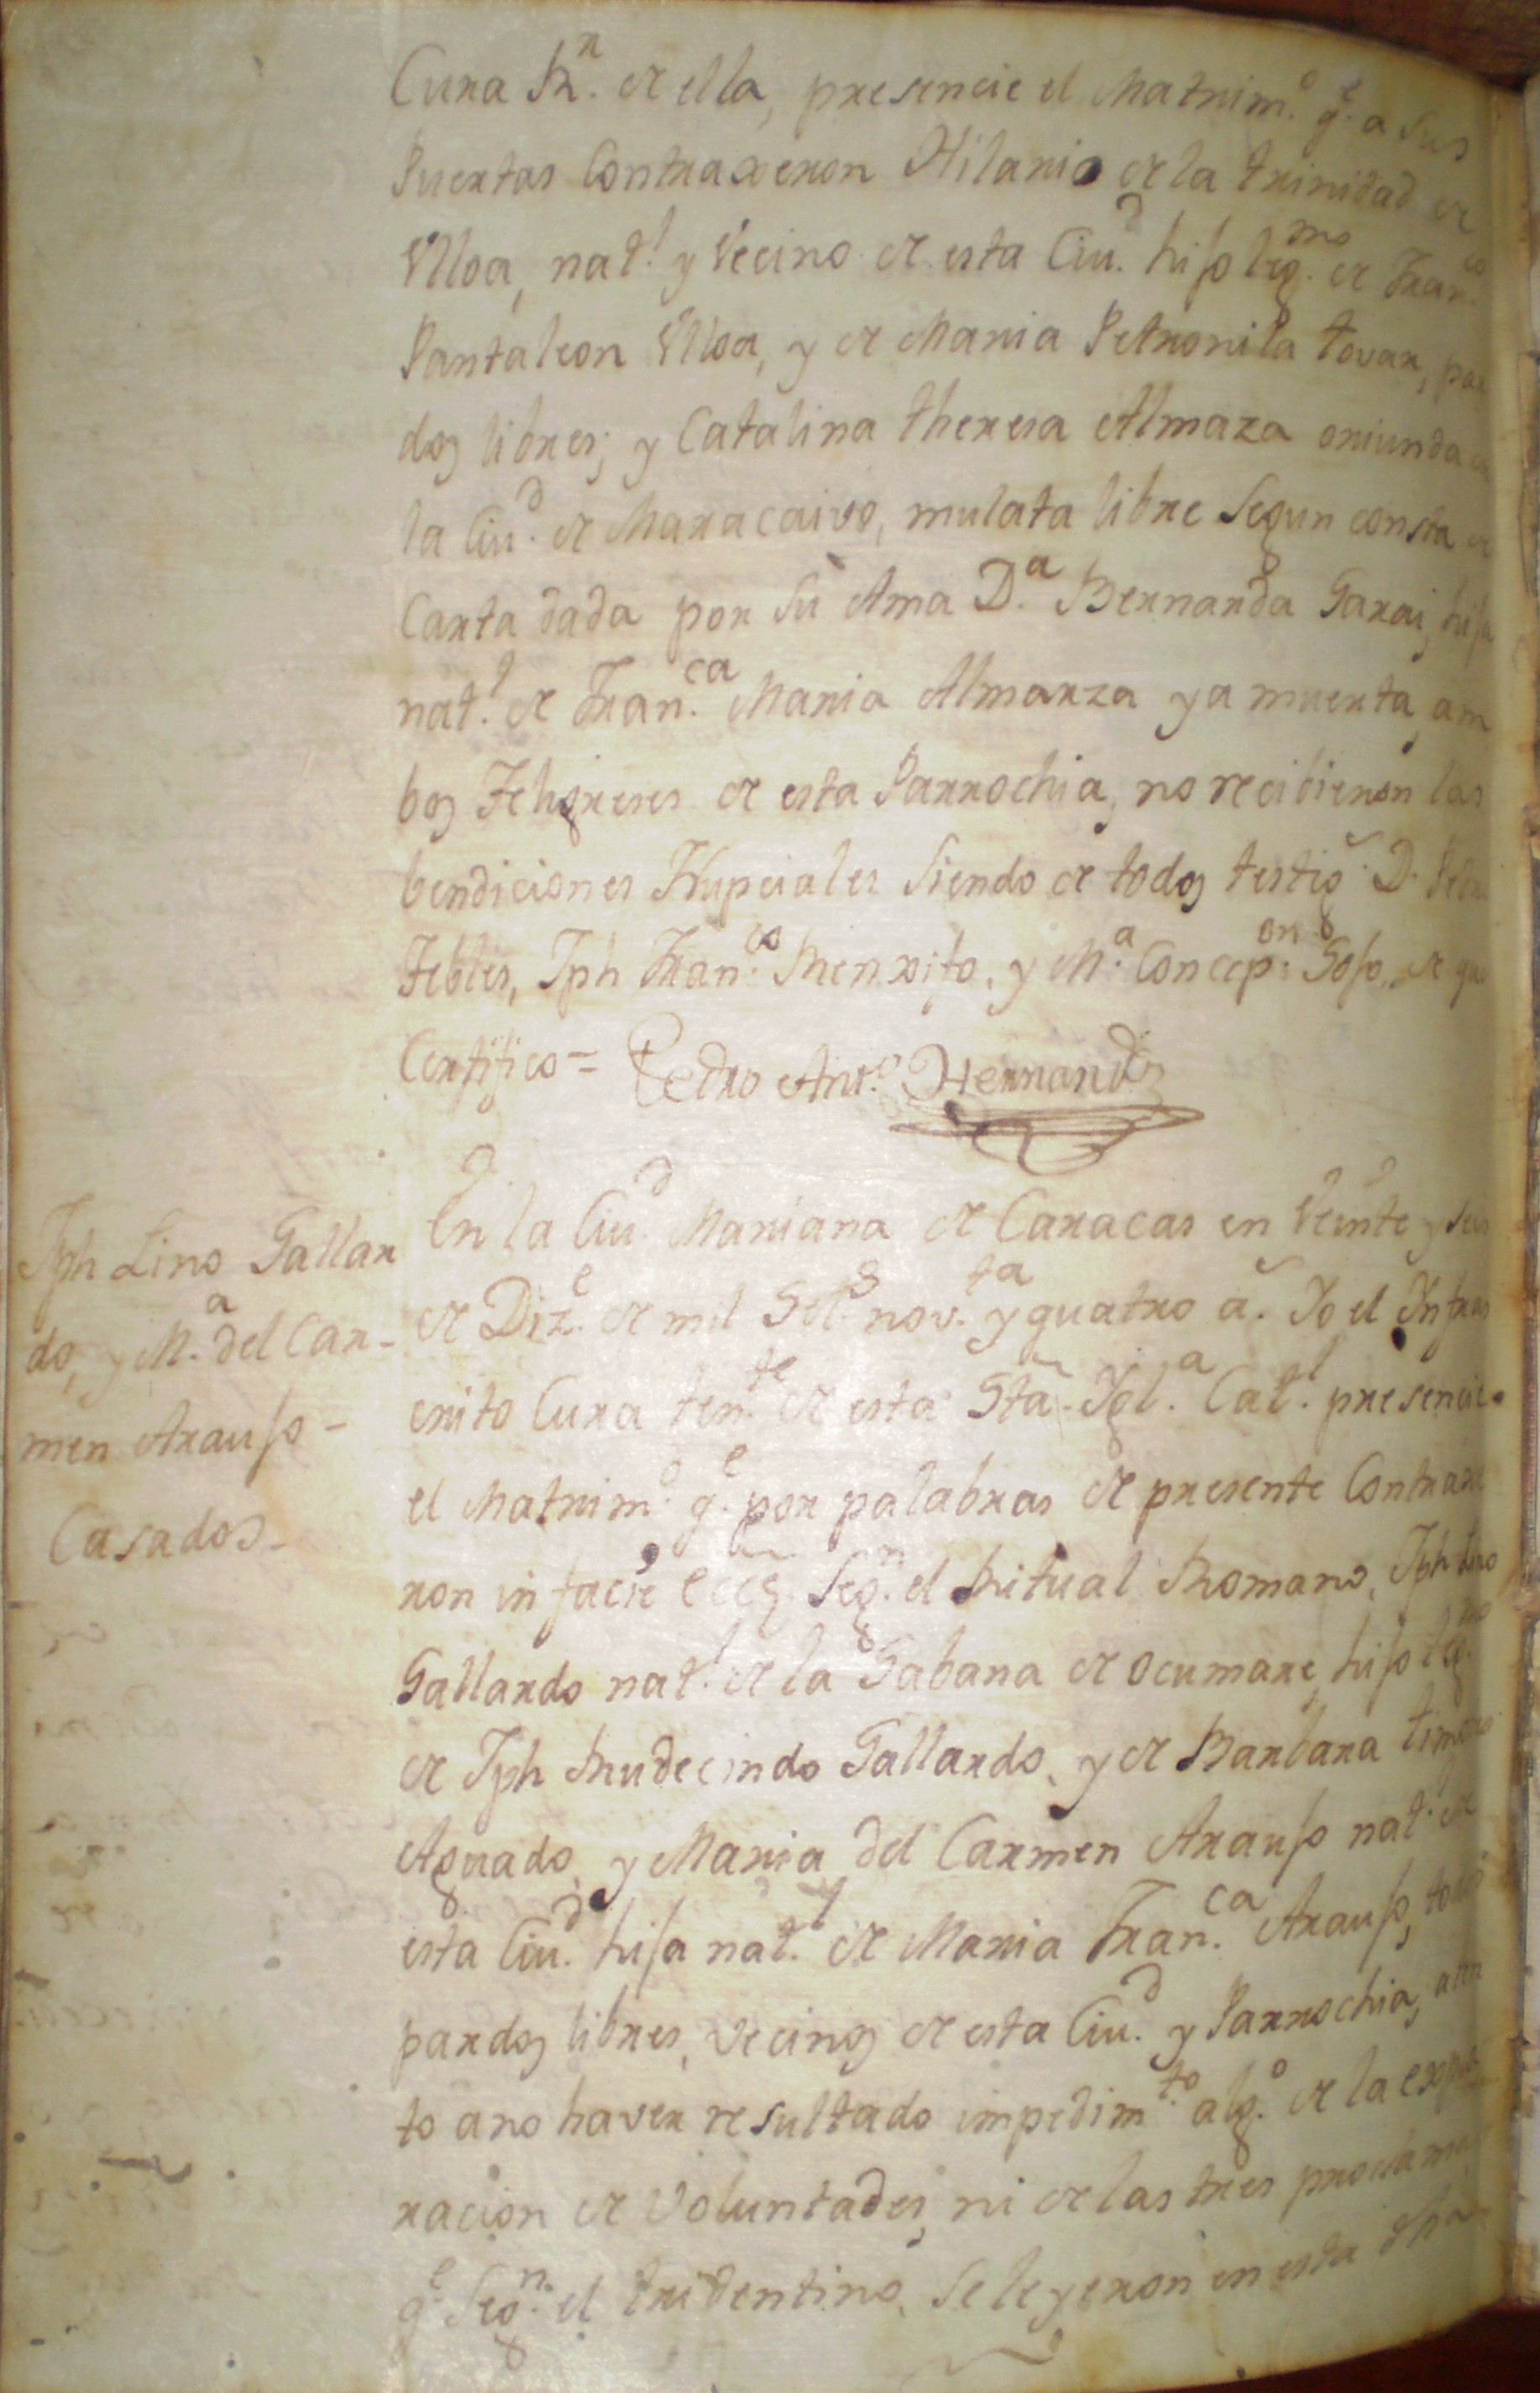 Cura Rn. de ella, presencie el Matrim.o q.e a sus
Puertas Contraxeron Hilario de la trinidad de
Ulloa, nat.l y Vecino de esta Ciu.d hijo leg.mo de Fran.co
Pantaleon Ulloa, y de Maria Petronila tovar, par
dos libres; y Catalina theresa Almaza oriunda de
la Ciu.d de Maracaivo, mulata libre Segun consta de
Carta dada por su Ama D.a Bernarda Garai, hija
nat.l de Fran.ca Maria Almarza ya muerta, am
bos Feligreses de esta Parrochia, no recibieron las
bendiciones Nupciales Siendo de todos testig.s D. Pedro
Febles, Jph Fran.co Renxifo, y M.a Concep.on Gojo, de que
Certifico = Pedro Ant.o Hernand.z
Jph Lino Gallar
do, y M.a del Car-
men Araujo -
Casados -
En la Ciu.d Mariana de Caracas en Veinte y seis
de Diz.e de mil Set.s nov.ta y quatro a.s Yo el Infras
crito Cura ten.te de esta Sta. Igl.a Cat.l presencie
el Matrim.o q.e por palabras de presente Contraxe
ron in facie Ecce Seg.n el Ritual Romano, Jph Lino
Gallardo nat.l de la Sabana de Ocumare, hijo leg.mo
de Jph Rudecindo Gallardo, y de Barbara
Aguado, y Maria del Carmen Araujo nat.l de
esta Ciu.d hija nat.l de Maria Fran.ca Araujo, todos
pardos libres, vecinos de esta Ciu.d y Parrochia, aten
to a no haver resultado impedim.to alg.o de la explo
racion de Voluntades, ni de las tres proclamas
q.e Seg.n el tridentino, se leyeron en esta dha